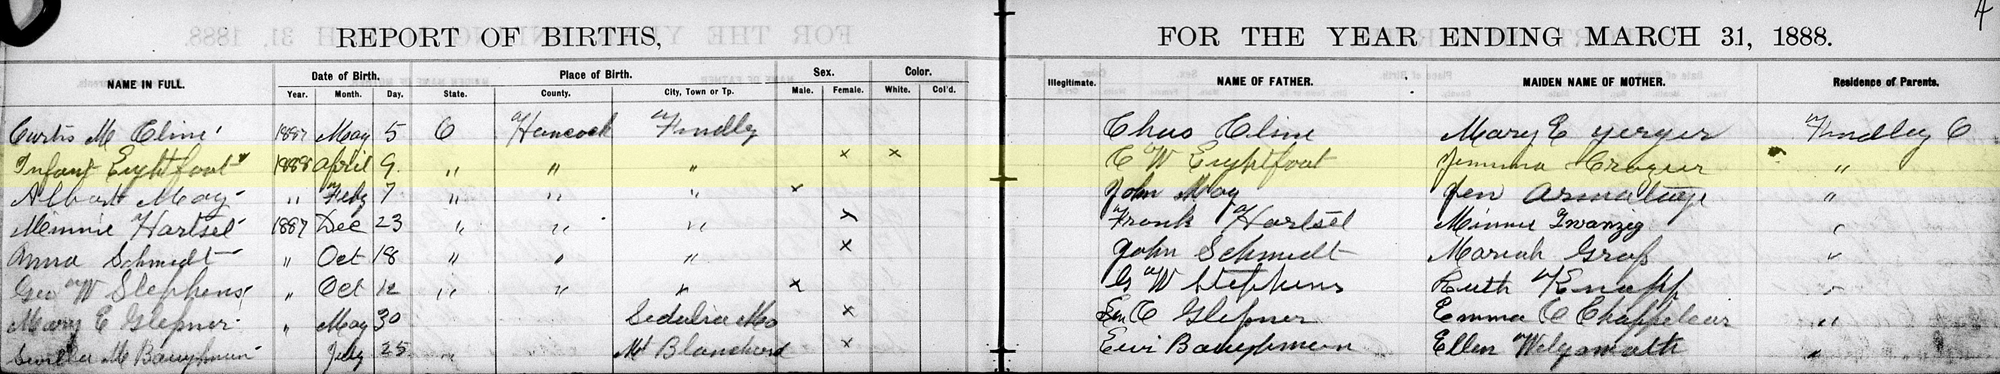 4
REPORT OF BIRTHS, FOR THE YEAR ENDING MARCH 31, 1888.
NAME IN FULL. Date of Birth. Place of Birth. Sex. Color. Illegitimate. NAME OF FATHER. MAIDEN NAME OF MOTHER. Residence of Parents.
Year. Month. Day. State. County. City, Town or Tp. Male. Female. White. Col'd.
Curtis M Cline 1887 May 5 O Hancock Findley Chas Cline Mary E Yerger Findley O
Infant Eightfoot 1888 April 9 " " " x x C W Eightfoot Jemima Crozier "
Albert May " Feby 7 " " " x John May Jen Armatage "
Minnie Hartsel 1887 Dec 23 " " " x Frank Hartsel Minnie Zwanzig "
Anna Schmidt " Oct 18 " " " x John Schmidt Mariah Graß "
Geo W Stephens " Oct 12 " " " x G W Stephens Ruth Knapp "
Mary E Gleßner " May 30 Sedalia Mo x C Gleßner Emma C Chappelear "
M Baughman July 25 " Mt Blanchard x Levi Baughman Ellen "